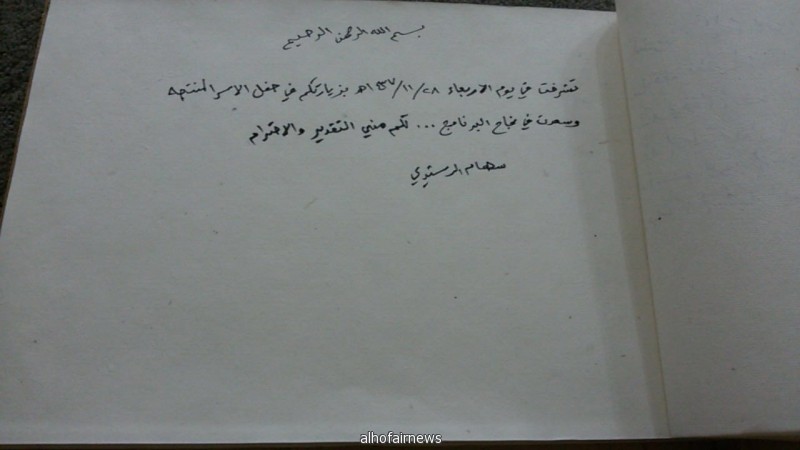 بسم الله الرحمن الرحيم
تشرفت في يوم الاربعاء ٢٨/١١/ هـ بزيارتكم في حفل الاسر المنتجه
وسعدت في نجاح البرنامج ... لكم مني التقدير والاحترام
سهام الرستيوي
alhofairnews